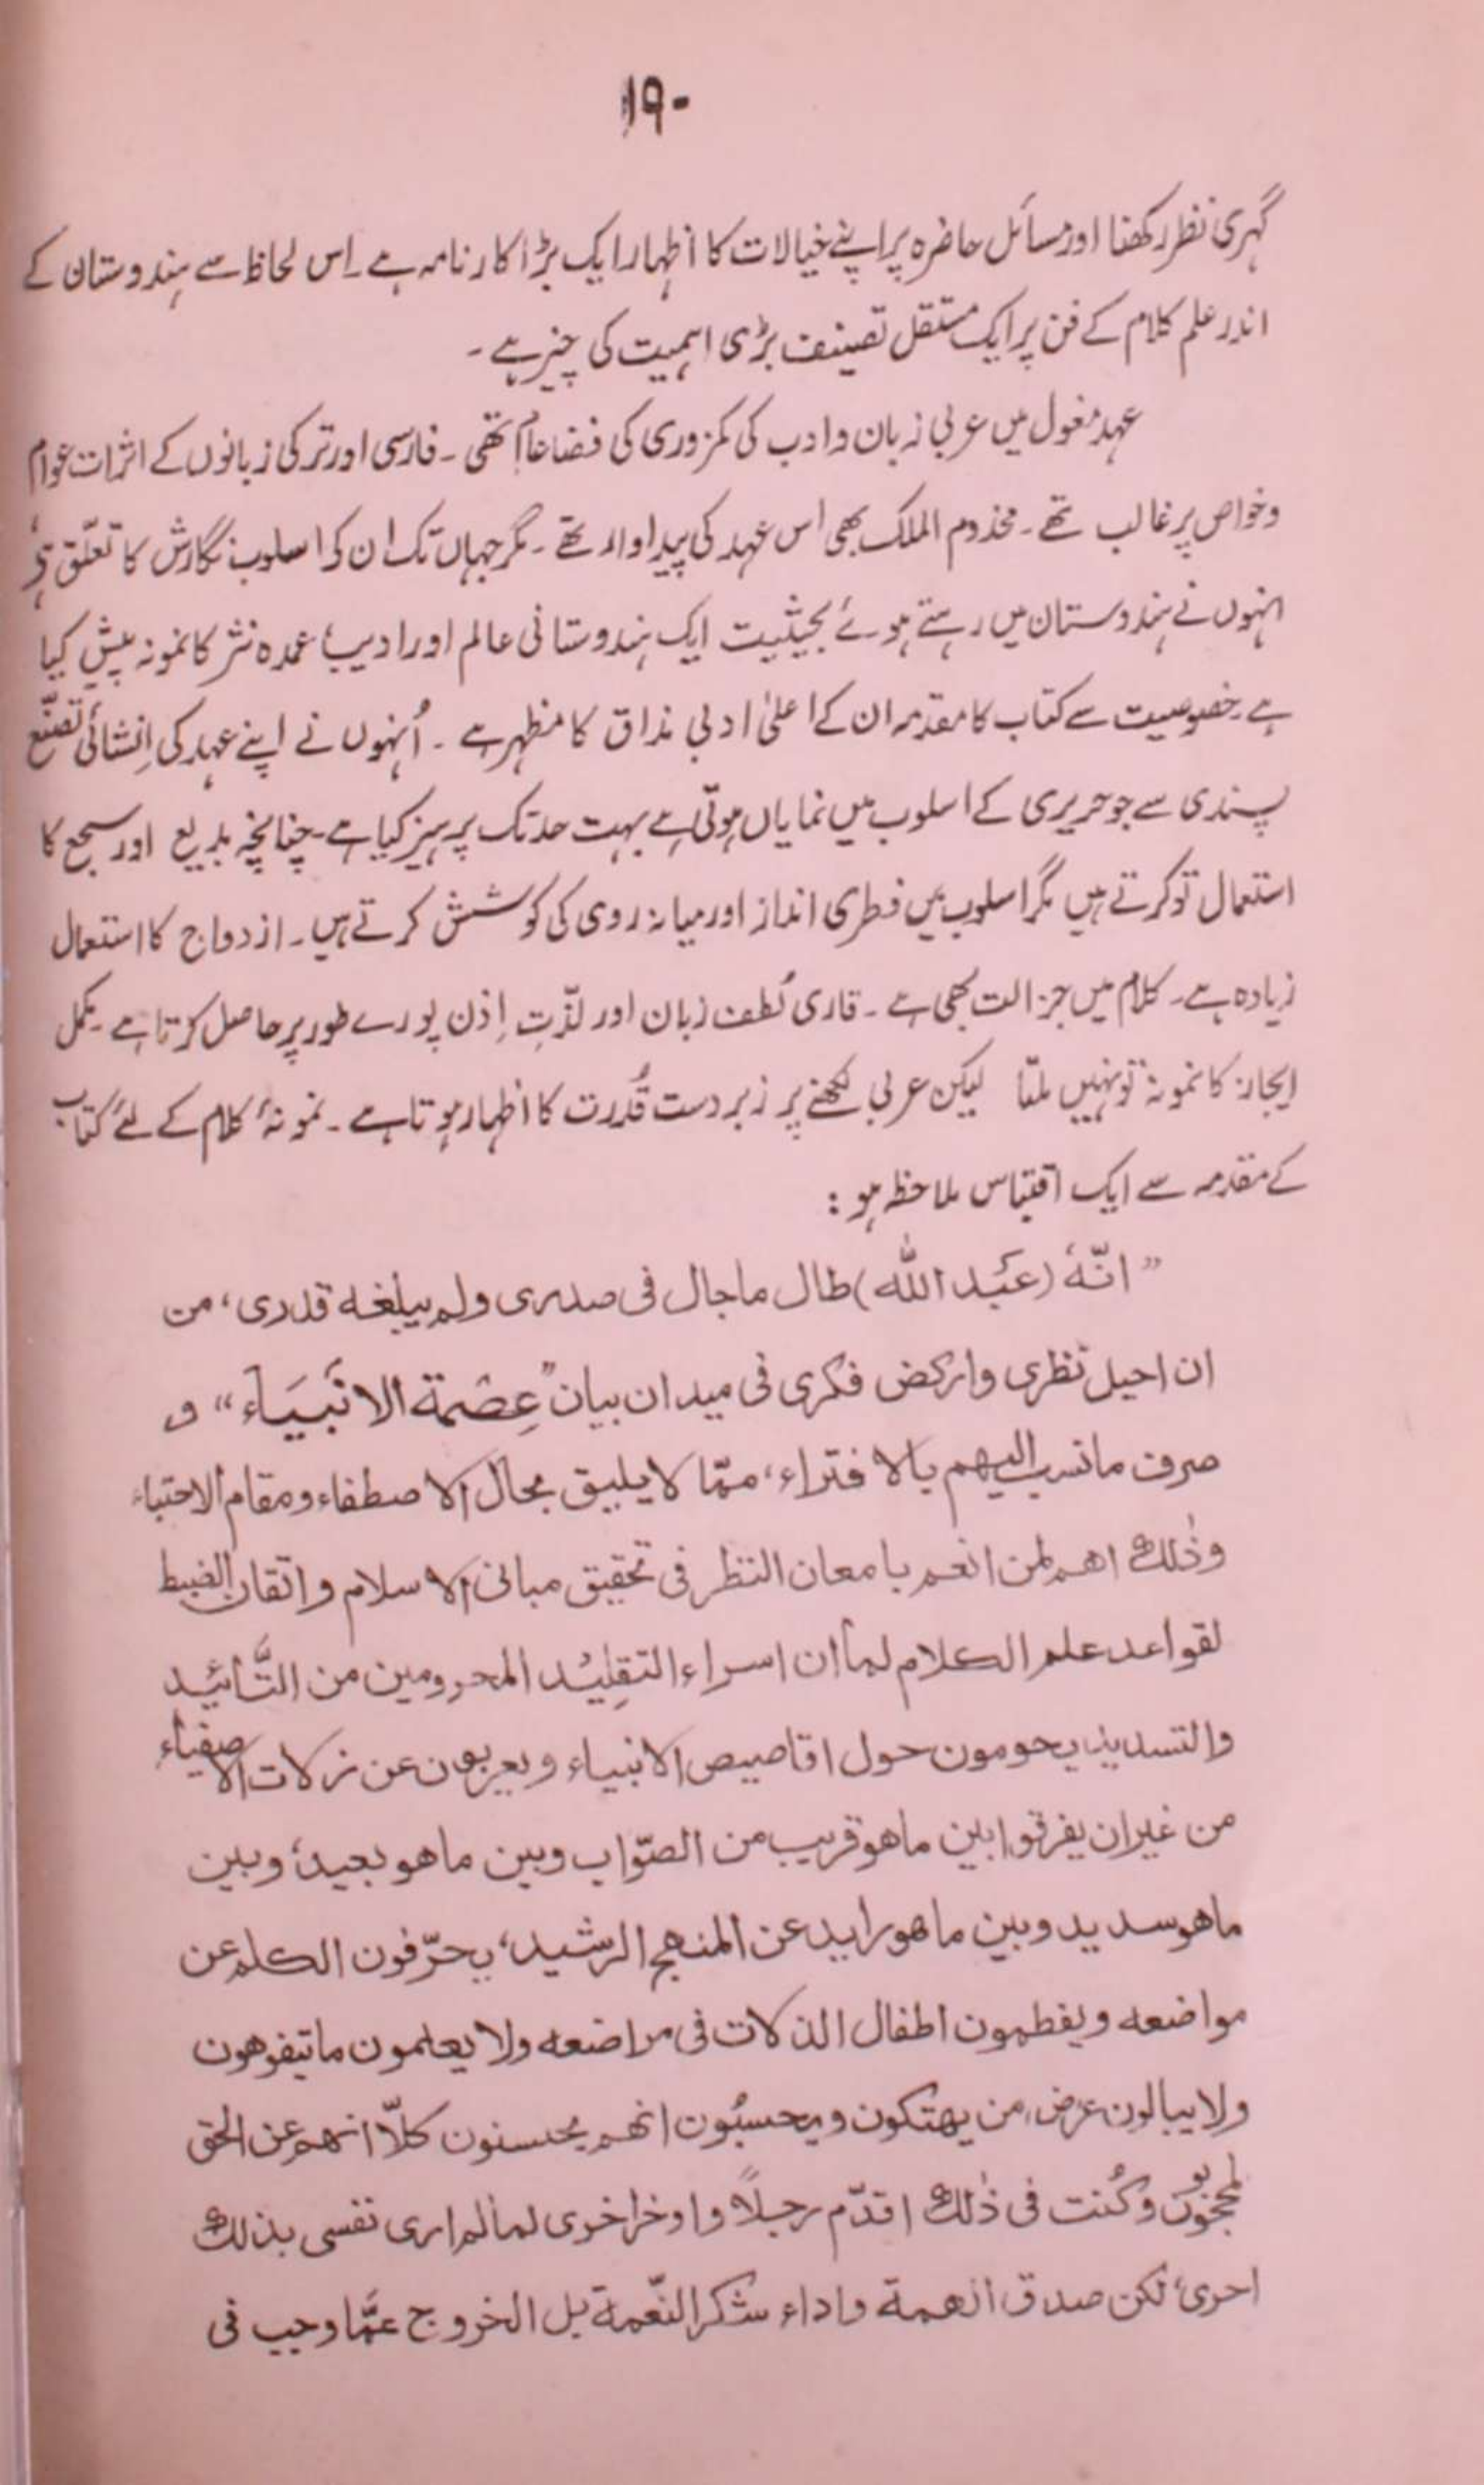 ۱۹۰
گہری نظر رکھنا اور مسائل حاضرہ پر اپنے خیالات کا اظہار ایک بڑا کارنامہ ہے۔ اس لحاظ سے ہندوستان کے
اندر علم کلام کے فن پر ایک مستقل تصنیف بڑی اہمیت کی چیز ہے۔
عہد مغول میں عربی زبان و ادب کی کمزوری کی فضا عام تھی۔ فارسی اور ترکی زبانوں کے اثرات عوام
و خواص پر غالب تھے۔ مخدوم الملک بھی اس عہد کی پیداوار تھے۔ مگر جہاں تک ان کے اسلوب نگارش کا تعلّق ہے
انہوں نے ہندوستان میں رہتے ہوئے بحیثیت ایک ہندوستانی عالم اور ادیب، عمدہ نثر کا نمونہ پیش کیا
ہے۔ خصوصیت سے کتاب کا مقدمہ ان کے اعلیٰ ادبی مذاق کا مظہر ہے۔ اُنہوں نے اپنے عہد کی اِنشائی تصنّع
پسندی سے جو حریری کے اسلوب میں نمایاں ہوتی ہے بہت حد تک پرہیز کیا ہے۔ چنانچہ بدیع اور سجع کا
استعمال تو کرتے ہیں مگر اسلوب میں فطری انداز اور میانہ روی کی کوشش کرتے ہیں۔ ازدواج کا استعمال
زیادہ ہے۔ کلام میں جزالت بھی ہے۔ قاری لُطف زبان اور لذّتِ اِذن پورے طور پر حاصل کرتا ہے۔ مکمل
ایجاز کا نمونہ تو نہیں ملتا لیکن عربی لکھنے پر زبردست قُدرت کا اظہار ہوتا ہے۔ نمونۂ کلام کے لئے کتاب
کے مقدمہ سے ایک اقتباس ملاحظہ ہو:
”انّهٗ (عَبد الله) طال ماجال فی صدری ولم یبلغه قدری، من
ان احیل نظری وارکض فکری فی میدان بیان ”عِصْمَة الانبیَاء“ و
صرف مانسب الیهم بالافتراء، ممّا لا یلیق بحال الاصطفاء ومقام الاجتباء
وذٰلك اهم لمن انعم بامعان النظر فی تحقیق مبانی الاسلام واتقان الضبط
لقواعد علم الکلام لما ان اسراء التقلِیْد المحرومین من التَّائید
والتسدید یحومون حول اقاصیص الانبیاء و یعربون عن زلات الاصفیاء
من غیران یفرقوا بین ماهو قریب من الصّواب وبین ماهو بعید، وبین
ماهو سدید وبین ماهو راید عن المنهج الرشید، یحرّفون الکلم عن
مواضعه ویفطمون اطفال الذلات فی مراضعه ولا یعلمون ماتیفوهون
ولا یبالون عرض من یهتکون ویحسبُون انهم یحسنون کلّا انهم عن الحق
لمحجوبون وکُنت فی ذٰلك اقدّم رجلاً واوخر اخری لما لم اری نفسی بذلك
احری، لکن صدق الهمة واداء شکر النّعمة بل الخروج عمَّا وجب فی